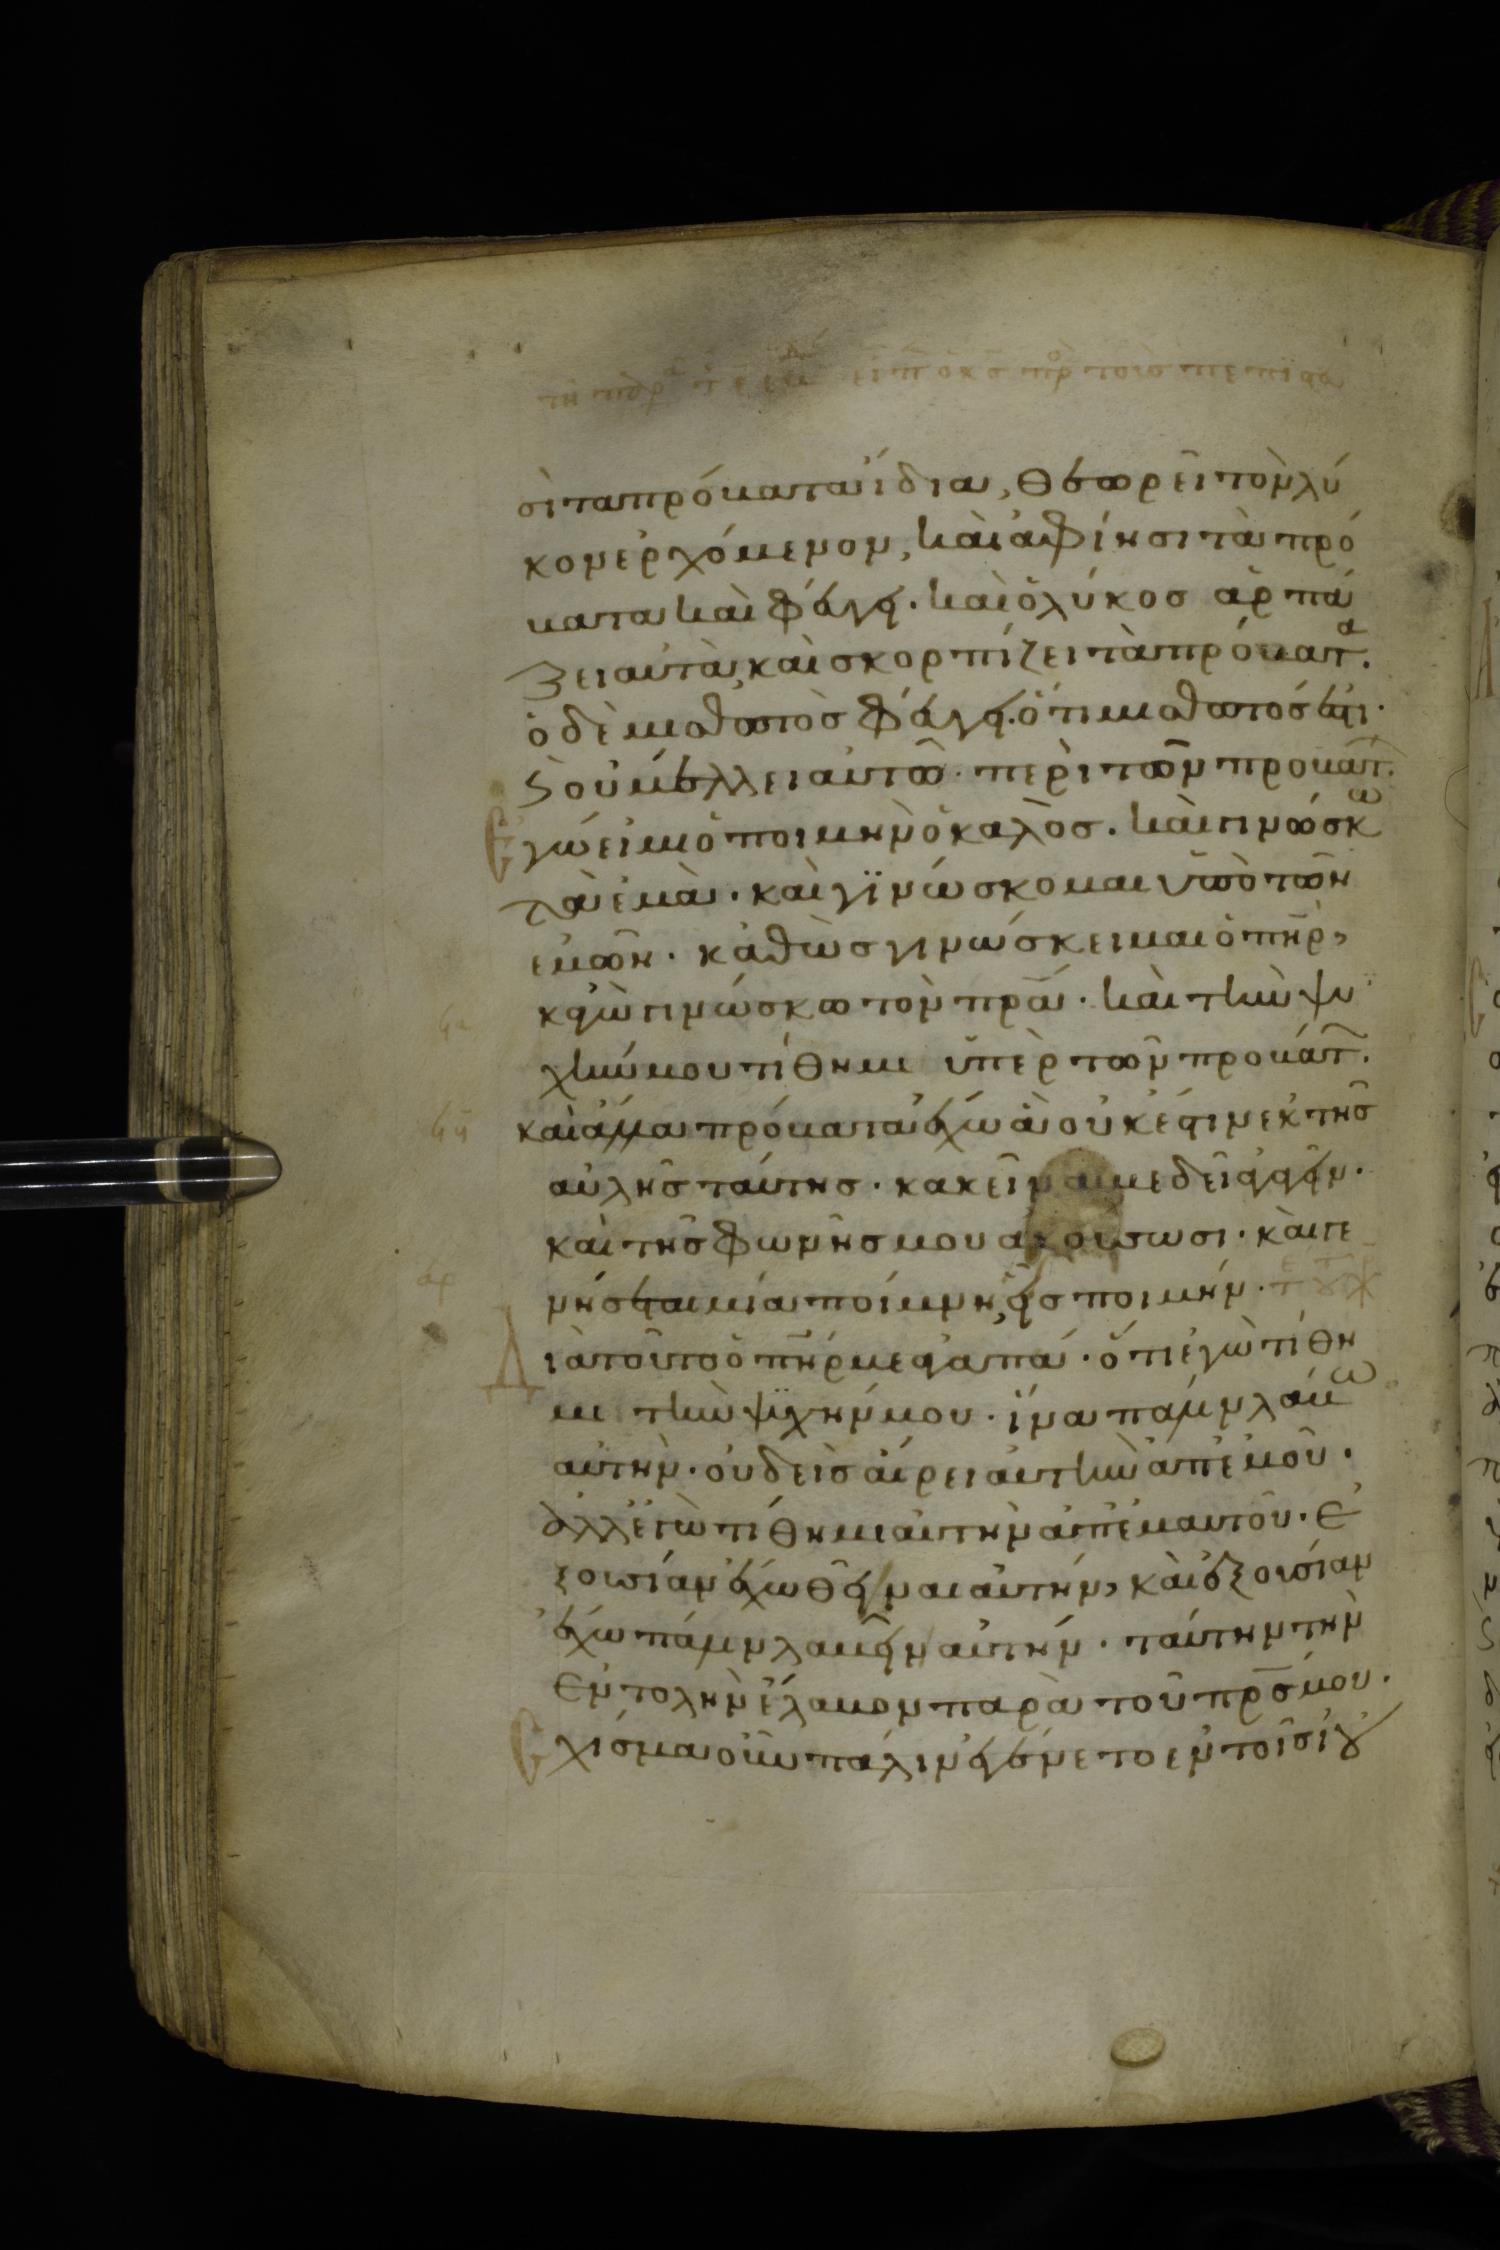 σὶ τα πρόβατα ἴδια, θεωρεῖ τὸν λύ
κον ἐρχόμενον, καὶ ἀφίησι τὰ πρό
βατα καὶ φεύγει· καὶ ὁ λύκος ἁρπά
ζει αυτὰ, καὶ σκορπίζει τὰ πρόβατ<sup>α</sup>.
ὁ δὲ μισθωτὸσ φεύγει· ὅτι μισθωτόσ ἐστι·
ϗ οὐ μέλλει αυτῶ· περὶ τῶν προβάτ.
Εγώ εἰμι ὁ ποιμὴν ὁ καλὸσ. καὶ γινώσκ<sup>ω</sup>
τὰ ἐμὰ· καὶ γϊνώσκομαι ὑπὸ τῶν
ἐμῶν· κἀθὼσ γινώσκει μαι ὁ πη̅ρ,
κἀγὼ γινώσκω τὸν πρ̅α· καὶ τὴν ψυ
χήν μου τίθημι ὑπὲρ τῶν προβάτ̅.
καὶ ἄλλα πρόβατα ἔχω ἃ οὐκ έστιν εκ τῆσ
αὐλῆσ ταύτησ· κακεῖνα με δεῖ ἀγαγεῖν·
καὶ τῆσ φωνῆσ μου ακούσωσι· κὰι γε
νήσεται μία ποίμνη, εἷσ ποιμήν·
Διὰ τοῦτο ὁ πη̅ρ με ἀγαπά· ὅτι ἐγὼ τίθη
μι τὴν ψϋχήν μου· ἵνα πάλιν λάβ<sup>ω</sup>
αὐτὴν· οὐδεὶσ αίρει αυτὴν ἀπ' ἐμοῦ·
ἀλλ' ἐγὼ τίθημι αυτὴν ἀπ' ἐμαυτοῦ· ἐ
ξουσίαν ἔχω θεῖναι αὐτήν, κὰι ἐξουσίαν
ἔχω πάλιν λαβεῖν αὐτήν· ταύτην τὴν
ἐντολὴν ἔλαβον παρὰ τοῦ πρ̅σ μου.
Σχίσμα οὖν πάλιν ἐγένετο ἐν τοῖσ ἰου